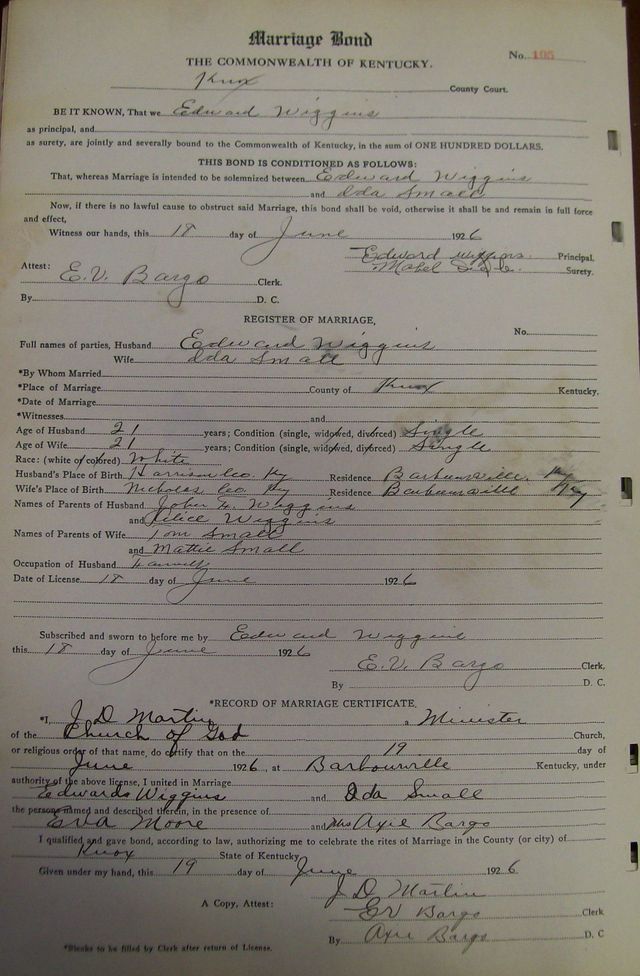 Marriage Bond
No. 195
THE COMMONWEALTH OF KENTUCKY.
Knox County Court.
BE IT KNOWN, That we Edward Wiggins
as principal, and
as surety, are jointly and severally bound to the Commonwealth of Kentucky, in the sum of ONE HUNDRED DOLLARS.
THIS BOND IS CONDITIONED AS FOLLOWS:
That, whereas Marriage is intended to be solemnized between Edward Wiggins
and Ida Small
Now, if there is no lawful cause to obstruct said Marriage, this bond shall be void, otherwise it shall be and remain in full force
and effect,
Witness our hands, this 18 day of June 1926
Edward Wiggins. Principal,
Surety.
Attest: E.V. Bargo Clerk.
By D. C.
REGISTER OF MARRIAGE,
No.
Full names of parties, Husband Edward Wiggins
Wife Ida Small
*By Whom Married
*Place of Marriage County of Knox Kentucky.
*Date of Marriage
*Witnesses and
Age of Husband 21 years; Condition (single, widowed, divorced) Single
Age of Wife 21 years; Condition (single, widowed, divorced) Single
Race: (white or colored) White
Husband's Place of Birth Harrison Co. Ky Residence Barbourville, Ky
Wife's Place of Birth Nicholas Co Ky Residence Barbourville Ky
Names of Parents of Husband John Wiggins
and Wiggins
Names of Parents of Wife Tom Small
and Mattie Small
Occupation of Husband
Date of License 18 day of June 1926
Subscribed and sworn to before me by Edward Wiggins
this 18 day of June 1926
E.V. Bargo Clerk,
By D. C.
*RECORD OF MARRIAGE CERTIFICATE.
*I, J D Martin a Minister
of the Church of God Church,
or religious order of that name, do certify that on the 19 day of
June 1926, at Barbourville Kentucky, under
authority of the above license, I united in Marriage
Edwards Wiggins and Ida Small
the persons named and described therein, in the presence of
Eva Moore and Mrs Axie Bargo
I qualified and gave bond, according to law, authorizing me to celebrate the rites of Marriage in the County (or city) of
Knox State of Kentucky
Given under my hand, this 19 day of June 1926
J D Martin
A Copy, Attest: EV Bargo Clerk
By Axie Bargo D. C
*Blanks to be filled by Clerk after return of License.